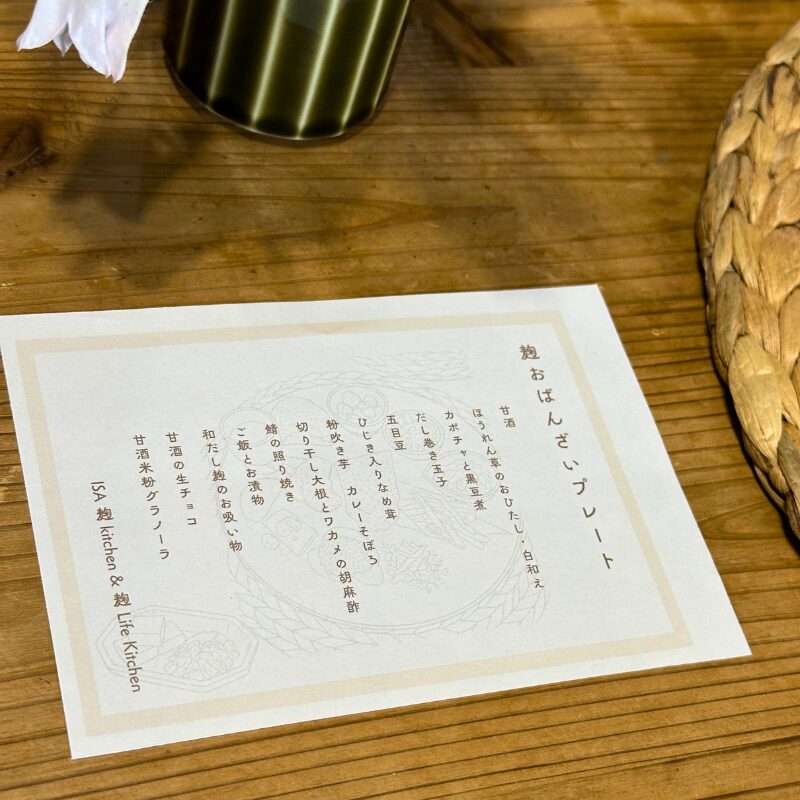 麹おばんざいプレート
甘酒
ほうれん草のおひたし・白和え
カボチャと黒豆煮
だし巻き玉子
五目豆
ひじき入りなめ茸
粉吹き芋　カレーそぼろ
切り干し大根とワカメの胡麻酢
鯖の照り焼き
ご飯とお漬物
和だし麹のお吸い物
甘酒の生チョコ
甘酒米粉グラノーラ
ISA 麹 kitchen & 麹 Life Kitchen